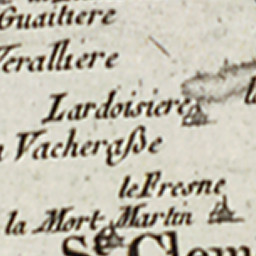 Guaitiere
Teralliere
Lardoisiere
Vacheraße
le Fresne
la Mort Martin
St Clem